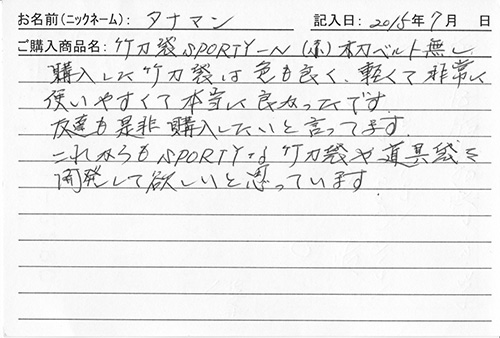 お名前(ニックネーム): タナマン 記入日: 2015年7月 日
ご購入商品名: 竹刀袋SPORTY-N (赤) 木刀ベルト無し
購入した竹刀袋は色も良く、軽くて非常に
使いやすくて本当に良かったです.
友達も是非購入したいと言ってます.
これからもSPORTYな竹刀袋や道具袋を
開発して欲しいと思っています